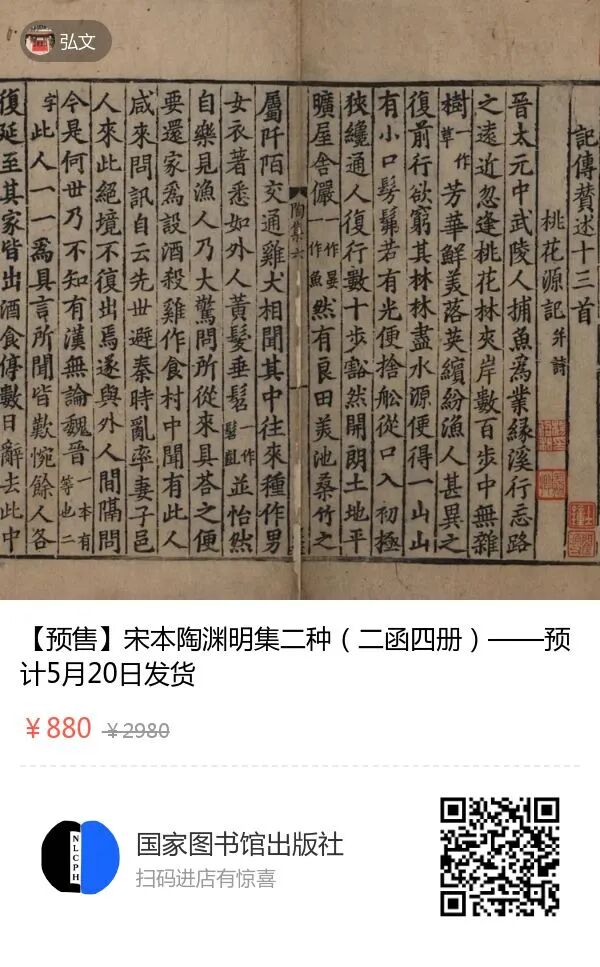 弘文
記傳贊述十三首
桃花源記并詩
晉太元中武陵人捕魚爲業緣溪行忘路
之遠近忽逢桃花林夾岸數百步中無雜
樹一作草芳華鮮美落英繽紛漁人甚異之
復前行欲窮其林林盡水源便得一山山
有小口髣髴若有光便捨船從口入初極
狹纔通人復行數十步豁然開朗土地平
曠屋舍儼一作晏一作魚然有良田美池桑竹之
陶集六
屬阡陌交通雞犬相聞其中往來種作男
女衣著悉如外人黃髮垂髫一作髫齓並怡然
自樂見漁人乃大驚問所從來具荅之便
要還家爲設酒殺雞作食村中聞有此人
咸來問訊自云先世避秦時亂率妻子邑
人來此絕境不復出焉遂與外人間隔問
今是何世乃不知有漢無論魏晉一本有等也二
字此人一一爲具言所聞皆歎惋餘人各
復延至其家皆出酒食停數日辭去此中
【预售】宋本陶渊明集二种（二函四册）——预
计5月20日发货
￥880 ￥2980
NLCPH
国家图书馆出版社
扫码进店有惊喜